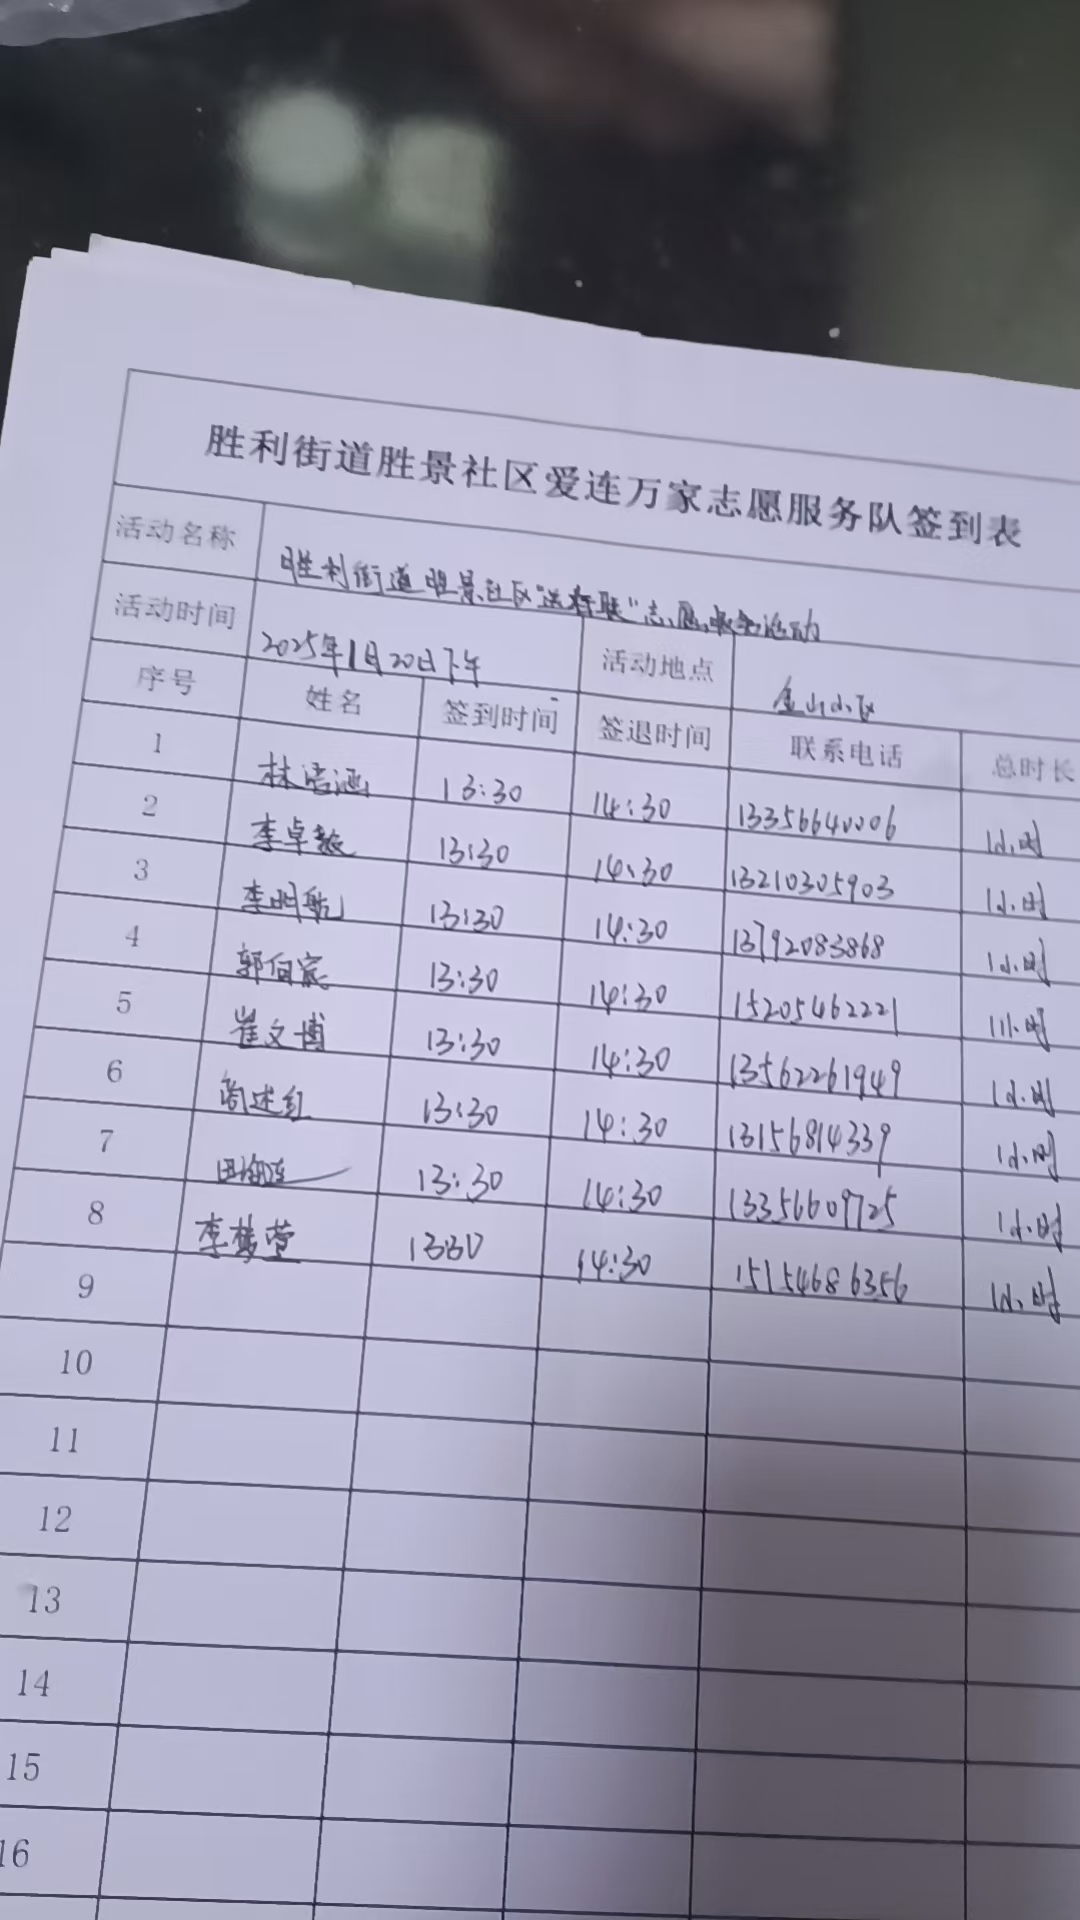 胜利街道胜景社区爱连万家志愿服务队签到表
活动名称 胜利街道胜景社区“送春联”志愿服务活动
活动时间 2025年1月20日下午 活动地点 金山小区
序号 姓名 签到时间 签退时间 联系电话 总时长
1 林浩涵 13:30 14:30 13356640006 1小时
2 李卓毅 13:30 14:30 13210305903 1小时
3 李明航 13:30 14:30 13792083868 1小时
4 郭向宸 13:30 14:30 15205462221 1小时
5 崔文博 13:30 14:30 13562261949 1小时
6 13:30 14:30 13156814339 1小时
7 田 13:30 14:30 13356609725 1小时
8 李梦萱 1330 14:30 15154686356 1小时
9
10
11
12
13
14
15
16